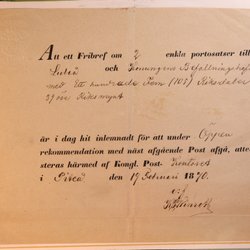 Att ett Fribref om 2 enkla portosatser till
Luleå och Konungens Befallningshaf
med Ett hundrade Fem (105) Riksdaler
29 öre Riksmynt
är i dag hit inlemnadt för att under Öppen
rekommendation med näst afgående Post afgå, atte-
steras härmed af Kongl. Post- Kontoret
i Piteå den 17 Februari 1870.